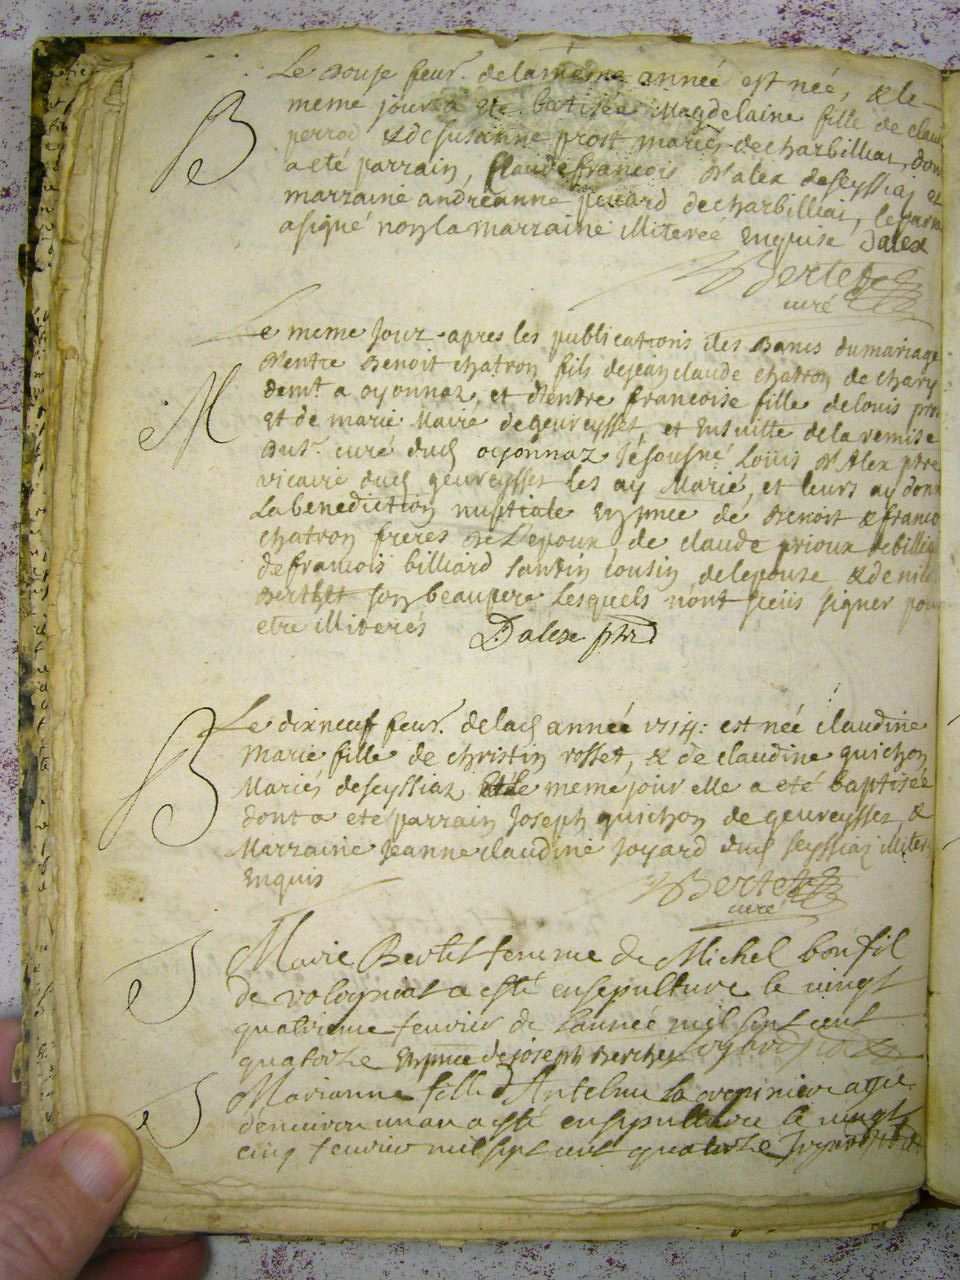 Le Douse feur. de la mesme anneé est neé, & le
B meme jour a eté batisée Magdelaine fille de claud
perrod & de susanne prost mariés de charbilliat, dont
a eté parrain, Claude francois D'alex de seyssiaz et
marraine andréanne juuard de charbilliat, le parn
a signé non la marraine illiterée Enquise Dalex
Bertet
curé
Le meme Jour apres les publications des Bancs du mariage
D'entre Benoit chatron fils de jean claude chatron de chary
M demt a oyonnaz, et D'entre francoise fille de louis
Et de marie Maire de geureysset, et Ensuitte de la remise
Du sr. curé dud oyonnaz Je sousné Louis D'Alex ptre
vicaire dud geureysset les ay Marié, et leurs ay donn
La benediction nuptiale En pnce de Benoit & franco
chatron freres De L'epoux, de claude prioux de billia
de francois billiard Landin cousin de lepouse & de
Berthet son beaupere Lesquels n'ont sceüs signer pour
etre illiterés Dalex ptre
Le dixneuf feur. de lad anneé 1714: est neé claudine
B Marie fille de christin rosset, & de claudine guichon
Mariés de seyssiaz Et le meme jour elle a eté baptisée
dont a eté parrain Joseph guichon de geureysset &
Marraine Jeanne claudine Joyard dud seyssiaz illiter
Enquis
Bertet
curé
Marie Bertet femme de Michel bonfil
de volognat a esté ensepulturee le vingt
quatrieme feurier de l'anneé mil sept cent
quatorze En pnce de joseph Berchet
Marianne fille d'Antelme La crepiniere agee
denuiron un an a esté ensepulturee le vingt
cinq feurier mil sept cent quatorze